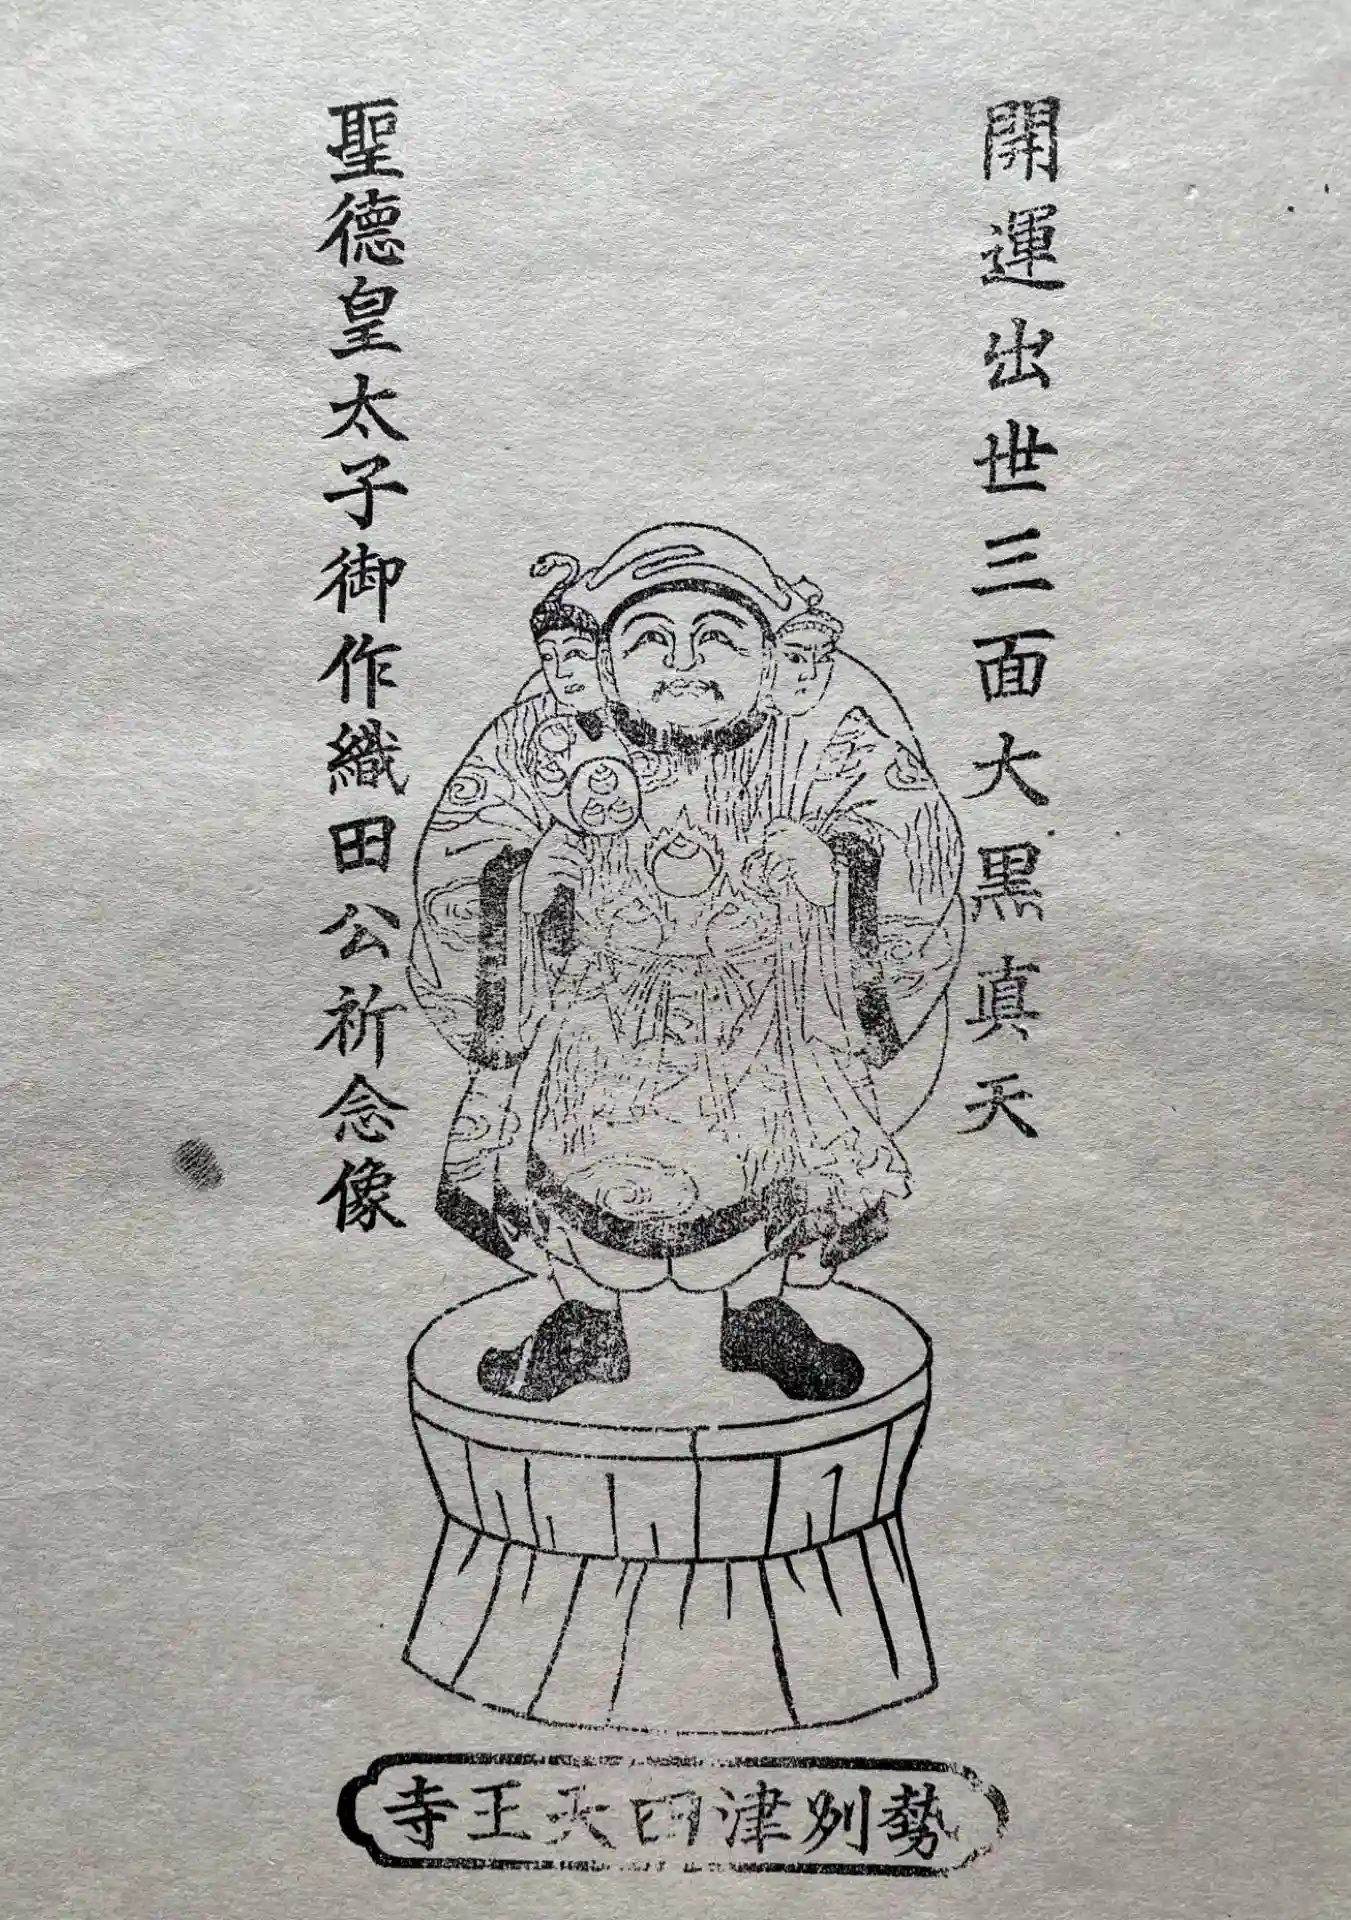 開運出世三面大黒真天
聖徳皇太子御作織田公祈念像
勢州津四天王寺